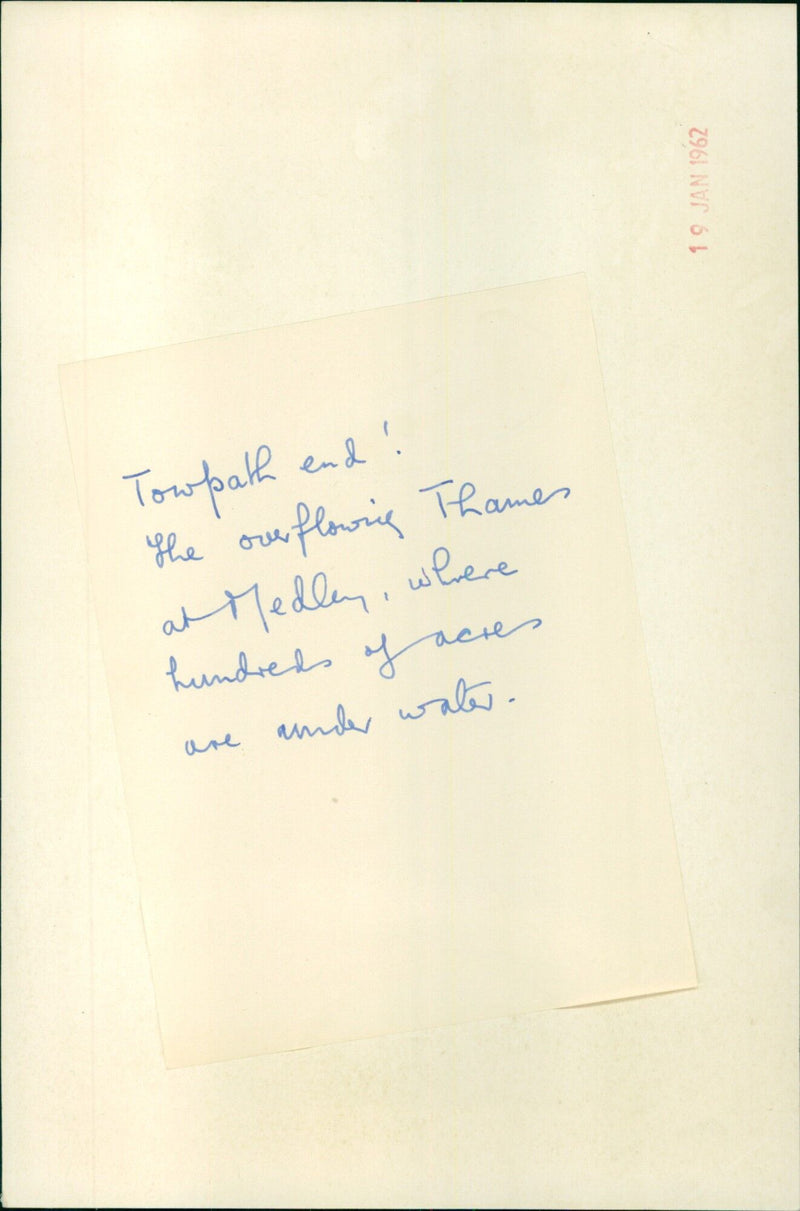 19 JAN 1962
Towpath end!
The overflowing Thames
at Medley, where
hundreds of acres
are under water.